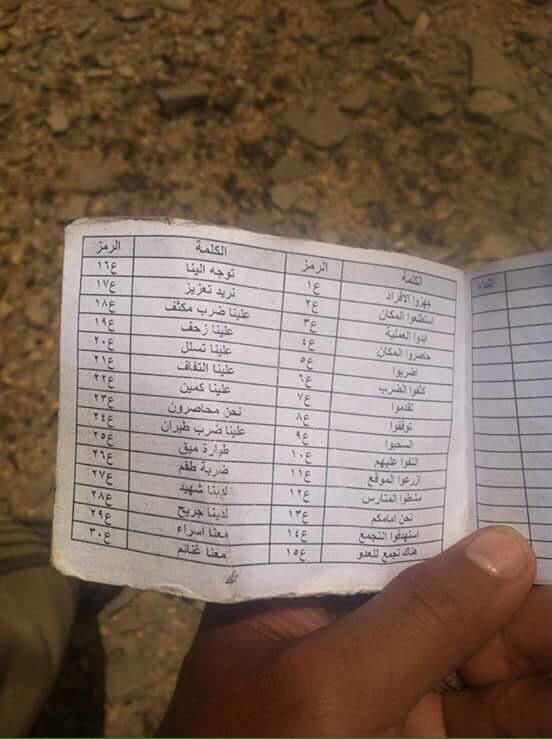 الكلمة الرمز
جهزوا الافراد ع١
استطلعوا المكان ع٢
ابدوا العملية ع٣
حاصروا المكان ع٤
اضربوا ع٥
كثفوا الضرب ع٦
تقدموا ع٧
توقفوا ع٨
انسحبوا ع٩
التفوا عليهم ع١٠
ازرعوا الموقع ع١١
مشطوا المتارس ع١٢
نحن امامكم ع١٣
استهدفوا التجمع ع١٤
هناك تجمع للعدو ع١٥
الكلمة الرمز
توجه الينا ع١٦
نريد تعزيز ع١٧
علينا ضرب مكثف ع١٨
علينا زحف ع١٩
علينا تسلل ع٢٠
علينا التفاف ع٢١
علينا كمين ع٢٢
نحن محاصرون ع٢٣
علينا ضرب طيران ع٢٤
طيارة ميق ع٢٥
ضربة طقم ع٢٦
لدينا شهيد ع٢٧
لدينا جريح ع٢٨
معنا اسراء ع٢٩
معنا غنائم ع٣٠